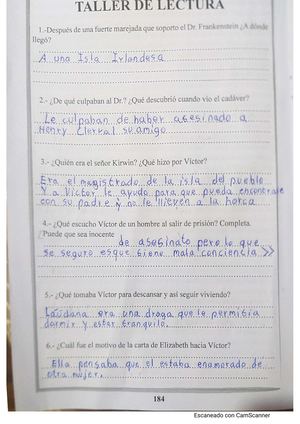 TALLER DE LECTURA
1.-Después de una fuerte marejada que soporto el Dr. Frankenstein ¿A dónde
llegó?
A una Isla Irlandesa
2.- ¿De qué culpaban al Dr.? ¿Qué descubrió cuando vio el cadáver?
Le culpaban de haber asesinado a
Henry Clerval su amigo
3.- ¿Quién era el señor Kirwin? ¿Qué hizo por Víctor?
Era el magistrado de la isla del pueblo
Y a Victor le ayudo para que pueda encontrarse
con su padre y no le lleven a la horca
4.- ¿Qué escucho Víctor de un hombre al salir de prisión? Completa.
Puede que sea inocente
de asesinato pero lo que
se seguro es que tiene mala conciencia >>
5.- ¿Qué tomaba Víctor para descansar y así seguir viviendo?
Laudana era una droga que le permitia
dormir y estar tranquilo.
6.- ¿Cuál fue el motivo de la carta de Elizabeth hacia Víctor?
Ella pensaba que el estaba enamorado de
otra mujer.
184
Escaneado con CamScanner